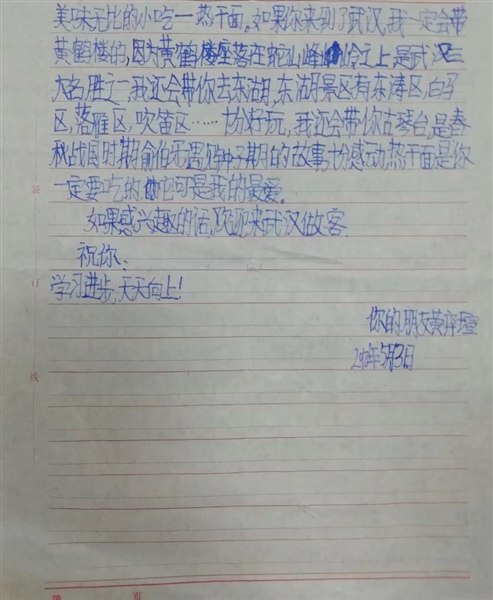 美味无比的小吃一热干面。如果你来到了武汉,我一定会带
黄鹤楼的,因为黄鹤楼座落在蛇山峰岭之上是武汉三
大名胜之一,我还会带你去东湖,东湖景区有东涛区,白马
区,落雁区,吹笛区……十分好玩,我还会带你古琴台,是春
秋战国时期俞伯牙遇钟子期的故事,十分感动热干面是你
一定要吃的,它可是我的最爱。
如果感兴趣的话,欢迎来武汉做客.
祝你:
学习进步,天天向上!
你的朋友黄
5月3日
装
订
线
第 页